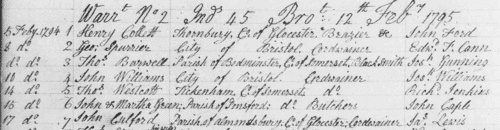 Warrt. No 2 Ind 45 Brot. 12th Feby 1795
5 Feby. 1794 1 Henry Collett Thornbury, Co. of Glocester Brazier &c John Ford
8 do. 2 Geo: Spurrier City of Bristol Cordwainer Edwd. T. Cann
do do. 3 Thos. Barwell Parish of Bedminster, C. of Somerset, Blacksmith Jos: Gunning
10 do. 4 John Williams City of Bristol Cordwainer Jos: Williams
14 do 5 Thos. Westcott Tickenham, C. of Somerset do Richd. Jenkins
15 do 6 John & Martha Green; Parish of do. Butchers John Cable
17 do. 7 John Parish of Almondsbury, C. of Glocester: Cordwainer Jas. Lewis